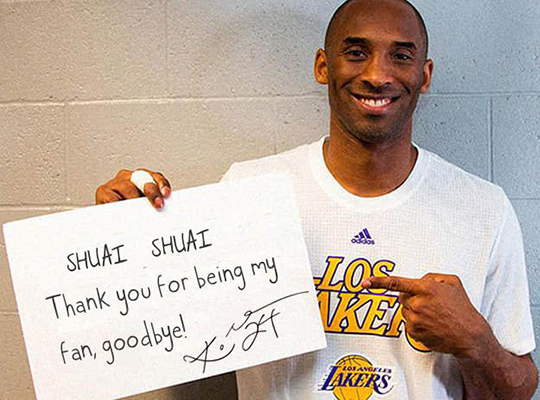 SHUAI SHUAI
Thank you for being my
fan, goodbye!
adidas
LOS
LAKERS
LOS ANGELES
LAKERS